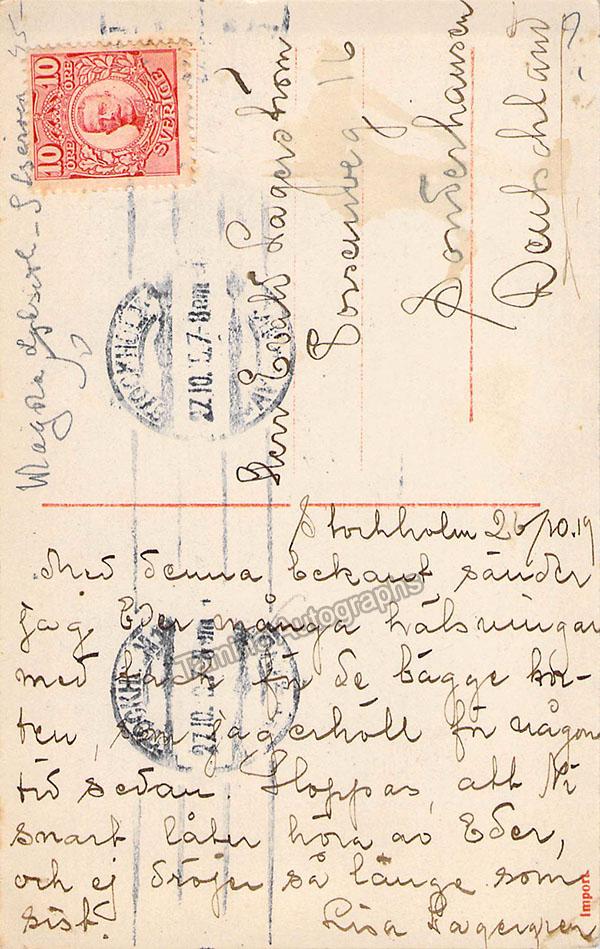 10 ÖRE ÖRE 10
SVERIGE
Magna Lykseth-
45
STOCKHOLM
27.10. 7-8 em
Herr Ewald Lagerström
16
Sondershausen
Deutschland
Stockholm 26/10.19
Med denna bekant sänder
jag Eder många hälsningar
med tack för de bägge kor-
ten, som jag erhöll för någon
tid sedan. Hoppas, att Ni
snart låter höra av Eder,
och ej dröjer så länge som
sist.
Lisa Lagergren
STOCKHOLM
27.10. 7-8 em
Tamino Autographs
Import.